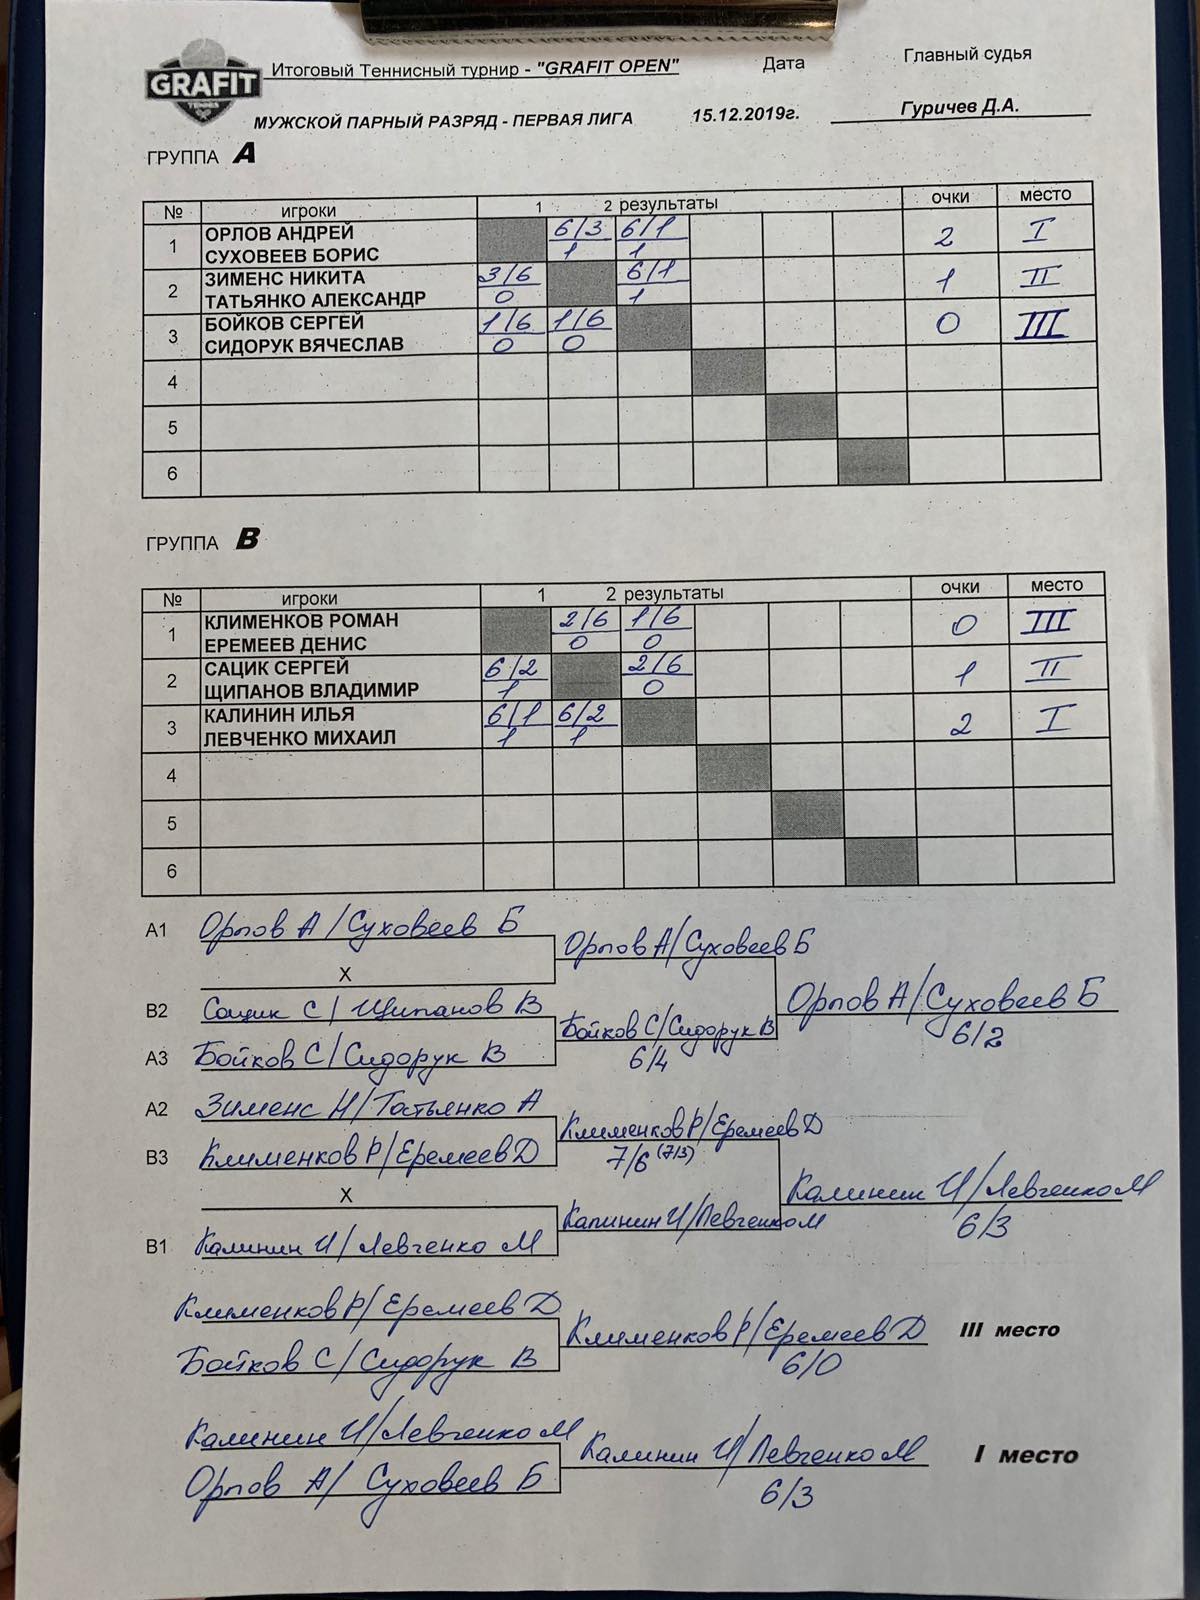 GRAFIT
TENNIS
Итоговый Теннисный турнир - "GRAFIT OPEN" Дата Главный судья
МУЖСКОЙ ПАРНЫЙ РАЗРЯД - ПЕРВАЯ ЛИГА 15.12.2019г. Гуричев Д.А.
ГРУППА А
№ игроки 1 2 результаты очки место
1 ОРЛОВ АНДРЕЙ 6/3 6/1 2 I
СУХОВЕЕВ БОРИС 1 1
2 ЗИМЕНС НИКИТА 3/6 6/1 1 II
ТАТЬЯНКО АЛЕКСАНДР 0 1
3 БОЙКОВ СЕРГЕЙ 1/6 1/6 0 III
СИДОРУК ВЯЧЕСЛАВ 0 0
4
5
6
ГРУППА В
№ игроки 1 2 результаты очки место
1 КЛИМЕНКОВ РОМАН 2/6 1/6 0 III
ЕРЕМЕЕВ ДЕНИС 0 0
2 САЦИК СЕРГЕЙ 6/2 2/6 1 II
ЩИПАНОВ ВЛАДИМИР 1 0
3 КАЛИНИН ИЛЬЯ 6/1 6/2 2 I
ЛЕВЧЕНКО МИХАИЛ 1 1
4
5
6
А1 Орлов А/Суховеев Б
Орлов А/Суховеев Б
X
Орлов А/Суховеев Б
6/2
В2 Сацик С/ Щипанов В
Бойков С/Сидорук В
6/4
А3 Бойков С/Сидорук В
А2 Зименс Н/Татьянко А
Клименков Р/Еремеев Д
7/6 (7/3)
В3 Клименков Р/Еремеев Д
X
Калинин И/Левченко М
6/3
Калинин И/Левченко М
В1 Калинин И/Левченко М
Клименков Р/Еремеев Д
Клименков Р/Еремеев Д III место
Бойков С/Сидорук В 6/0
Калинин И/Левченко М
Калинин И/Левченко М I место
Орлов А/ Суховеев Б 6/3